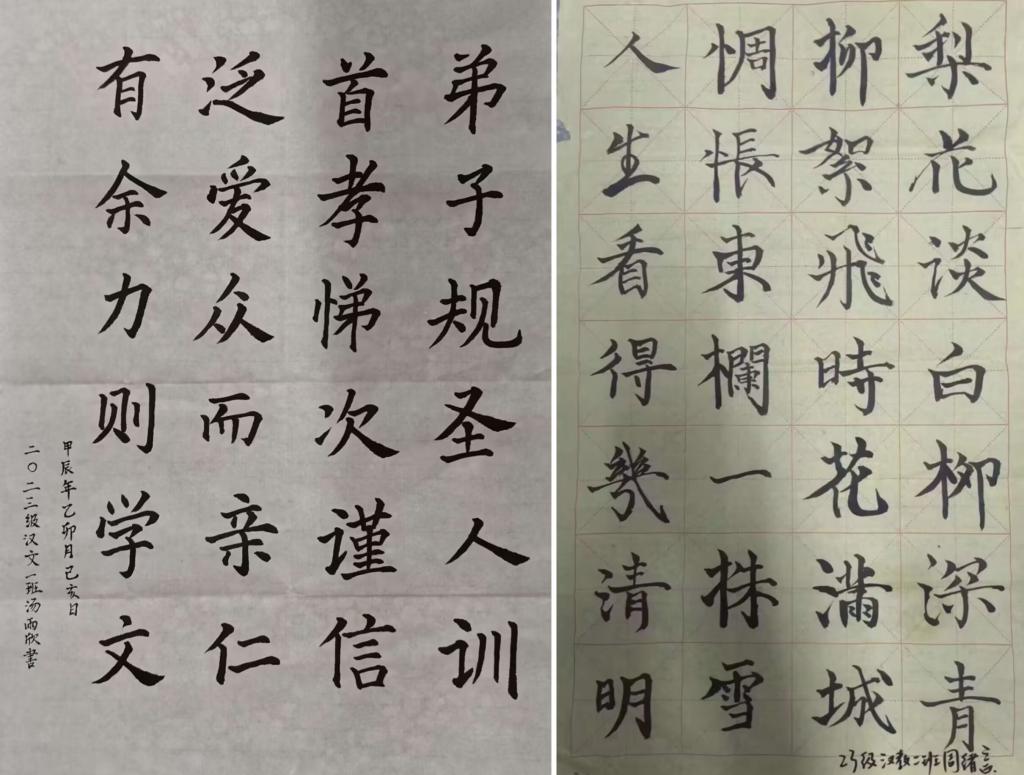 弟子规圣人训
首孝悌次谨信
泛爱众而亲仁
有余力则学文
甲辰年乙卯月己亥日
二〇二三级汉文一班汤雨欣書
梨花淡白柳深青
柳絮飛時花滿城
惆悵東欄一株雪
人生看得幾清明
23级汉教二班